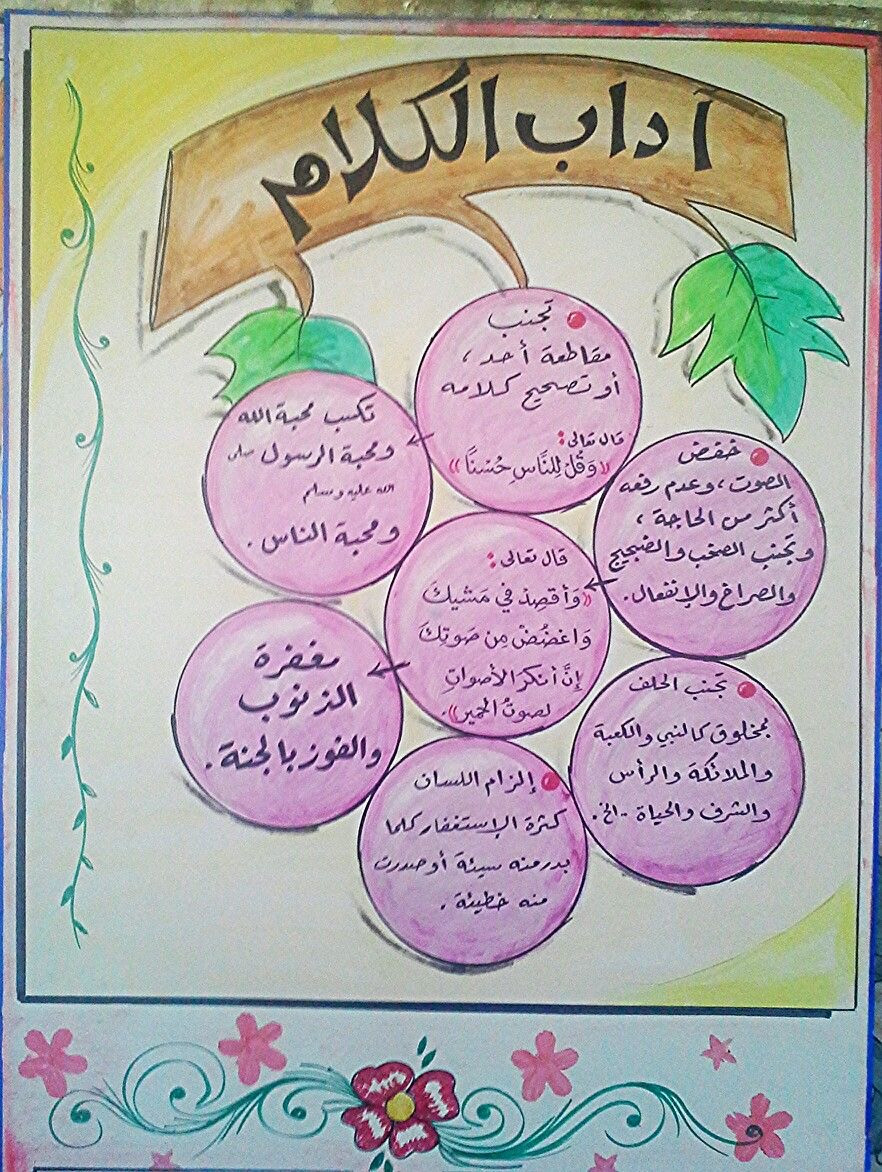 آداب الكلام
تجنب
مقاطعة أحد ،
أو تصحيح كلامه
قال تعالى :
((وَقُلْ لِلنَّاسِ حُسْنًا))
تكسب محبة الله
ومحبة الرسول صلى
الله عليه وسلم
ومحبة الناس .
خفض
الصوت ، وعدم رفعه
أكثر من الحاجة ،
وتجنب الصخب والضجيج
والصراخ والإنفعال .
قال تعالى :
((وَأقصِدْ في مَشيكَ
وَاغضُضْ مِن صَوتِكَ
إنَّ أنكرَ الأصواتِ
لصوتُ الحمير)) .
مغفرة
الذنوب
والفوز بالجنة .
تجنب الحلف
بمخلوق كالنبي والكعبة
والملائكة والرأس
والشرف والحياة .. الخ .
إلزام اللسان
كثرة الإستغفار كلما
بدر منه سيئة أو صدرت
منه خطيئة .